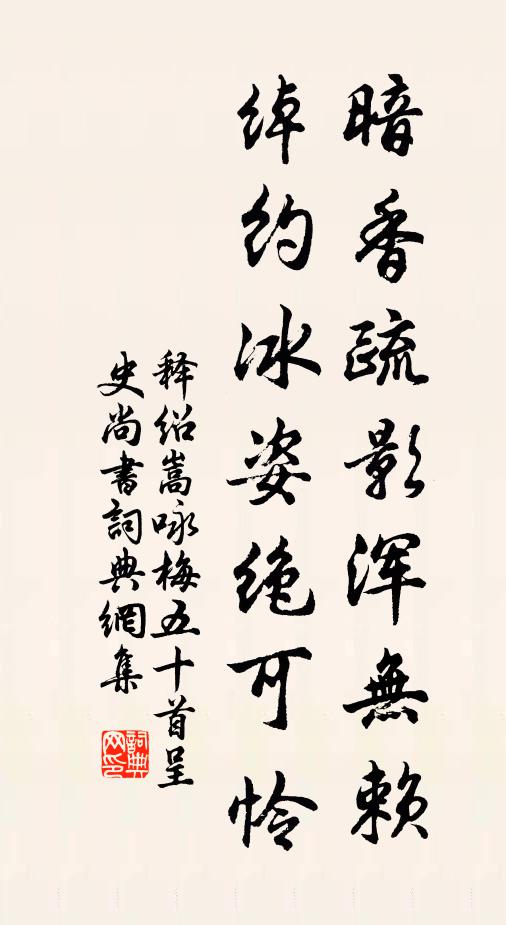 暗香疏影浑無赖
绰约冰姿绝可怜
释绍嵩咏梅五十首呈
史尚書詞典網集
詞典网印